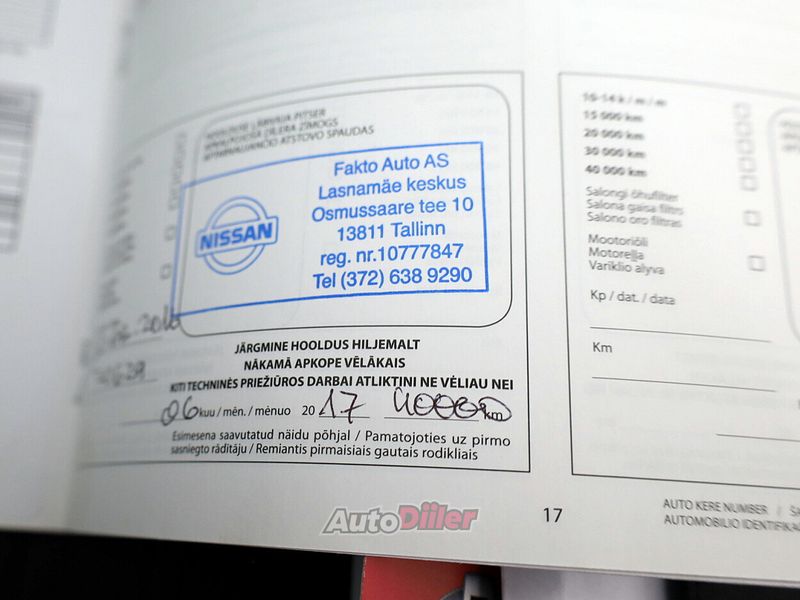 ATSTOVO SPAUDAS
NISSAN
Fakto Auto AS
Lasnamäe keskus
Osmussaare tee 10
13811 Tallinn
reg. nr.10777847
Tel (372) 638 9290
JÄRGMINE HOOLDUS HILJEMALT
NĀKAMĀ APKOPE VĒLĀKAIS
KITI TECHNINĖS PRIEŽIŪROS DARBAI ATLIKTINI NE VĖLIAU NEI
06 kuu / mēn. / mėnuo 2017 40000 km
Esimesena saavutatud näidu põhjal / Pamatojoties uz pirmo
sasniegto rādītāju / Remiantis pirmaisiais gautais rodikliais
15 000 km
20 000 km
30 000 km
40 000 km
Salongi õhufilter
Salona gaisa filtrs
Salono oro filtras
Mootoriõli
Motoreļļa
Variklio alyva
Kp / dat. / data
Km
17
AUTO KERE NUMBER /
AUTOMOBILIO
AutoDiiler